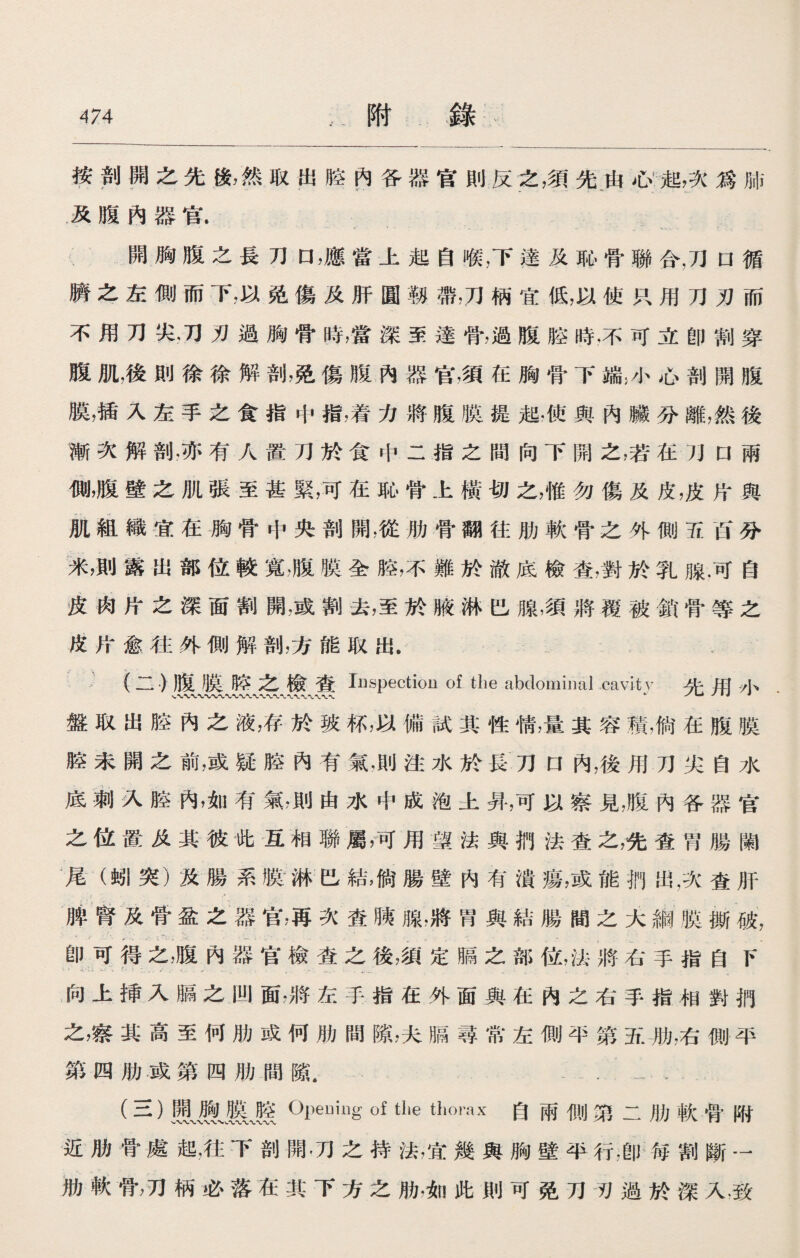 474 附錄
按剖開之先後,然取出腔內各器官則反之,須先由心起,次爲肺
及腹內器官.
開胸腹之長刀口,應當上起自喉,下達及恥骨聯合,刀口循
臍之左側而下,以免傷及肝圓韌帶,刀柄宜低,以使只用刀刃而
不用刀尖,刀刃過胸骨時,當深至達骨,過腹腔時,不可立卽割穿
腹肌,後則徐徐解剖,免傷腹內器官,須在胸骨下端,小心剖開腹
膜,插入左手之食指中指,着力將腹膜提起,使與內臟分離,然後
漸次解剖,亦有人置刀於食中二指之間向下開之,若在刀口兩
側,腹壁之肌張至甚緊,可在恥骨上橫切之,惟勿傷及皮,皮片與
肌組織宜在胸骨中央剖開,從肋骨翻往肋軟骨之外側五百分
米,則露出部位較寬,腹膜全腔,不難於澈底檢查,對於乳腺,可自
皮肉片之深面割開,或割去,至於腋淋巴腺,須將覆被鎖骨等之
皮片愈往外側解剖,方能取出.
(二)腹膜腔之檢查 Inspection of the abdominal cavity 先用小
盤取出腔內之液,存於玻杯,以備試其性情,量其容積,倘在腹膜
腔未開之前,或疑腔內有氣,則注水於長刀口內,後用刀尖自水
底刺入腔內,如有氣,則由水中成泡上昇,可以察見,腹內各器官
之位置及其彼此互相聯屬,可用望法與捫法查之,先查胃腸闌
尾(蚓突)及腸系膜淋巴結,倘腸壁內有潰瘍,或能捫出,次查肝
脾腎及骨盆之器官,再次查胰腺,將胃與結腸間之大網膜撕破,
卽可得之,腹內器官檢查之後,須定膈之部位,法將右手指自下
向上揷入膈之凹面,將左手指在外面與在內之右手指相對捫
之,察其高至何肋或何肋間隙,夫膈尋常左側平第五肋,右側平
第四肋或第四肋間隙.
(三)開胸膜腔 Opening of the thorax 自兩側第二肋軟骨附
近肋骨處起,往下剖開,刀之持法,宜幾與胸壁平行,卽每割斷一
肋軟骨,刀柄必落在其下方之肋,如此則可免刀刃過於深入,致